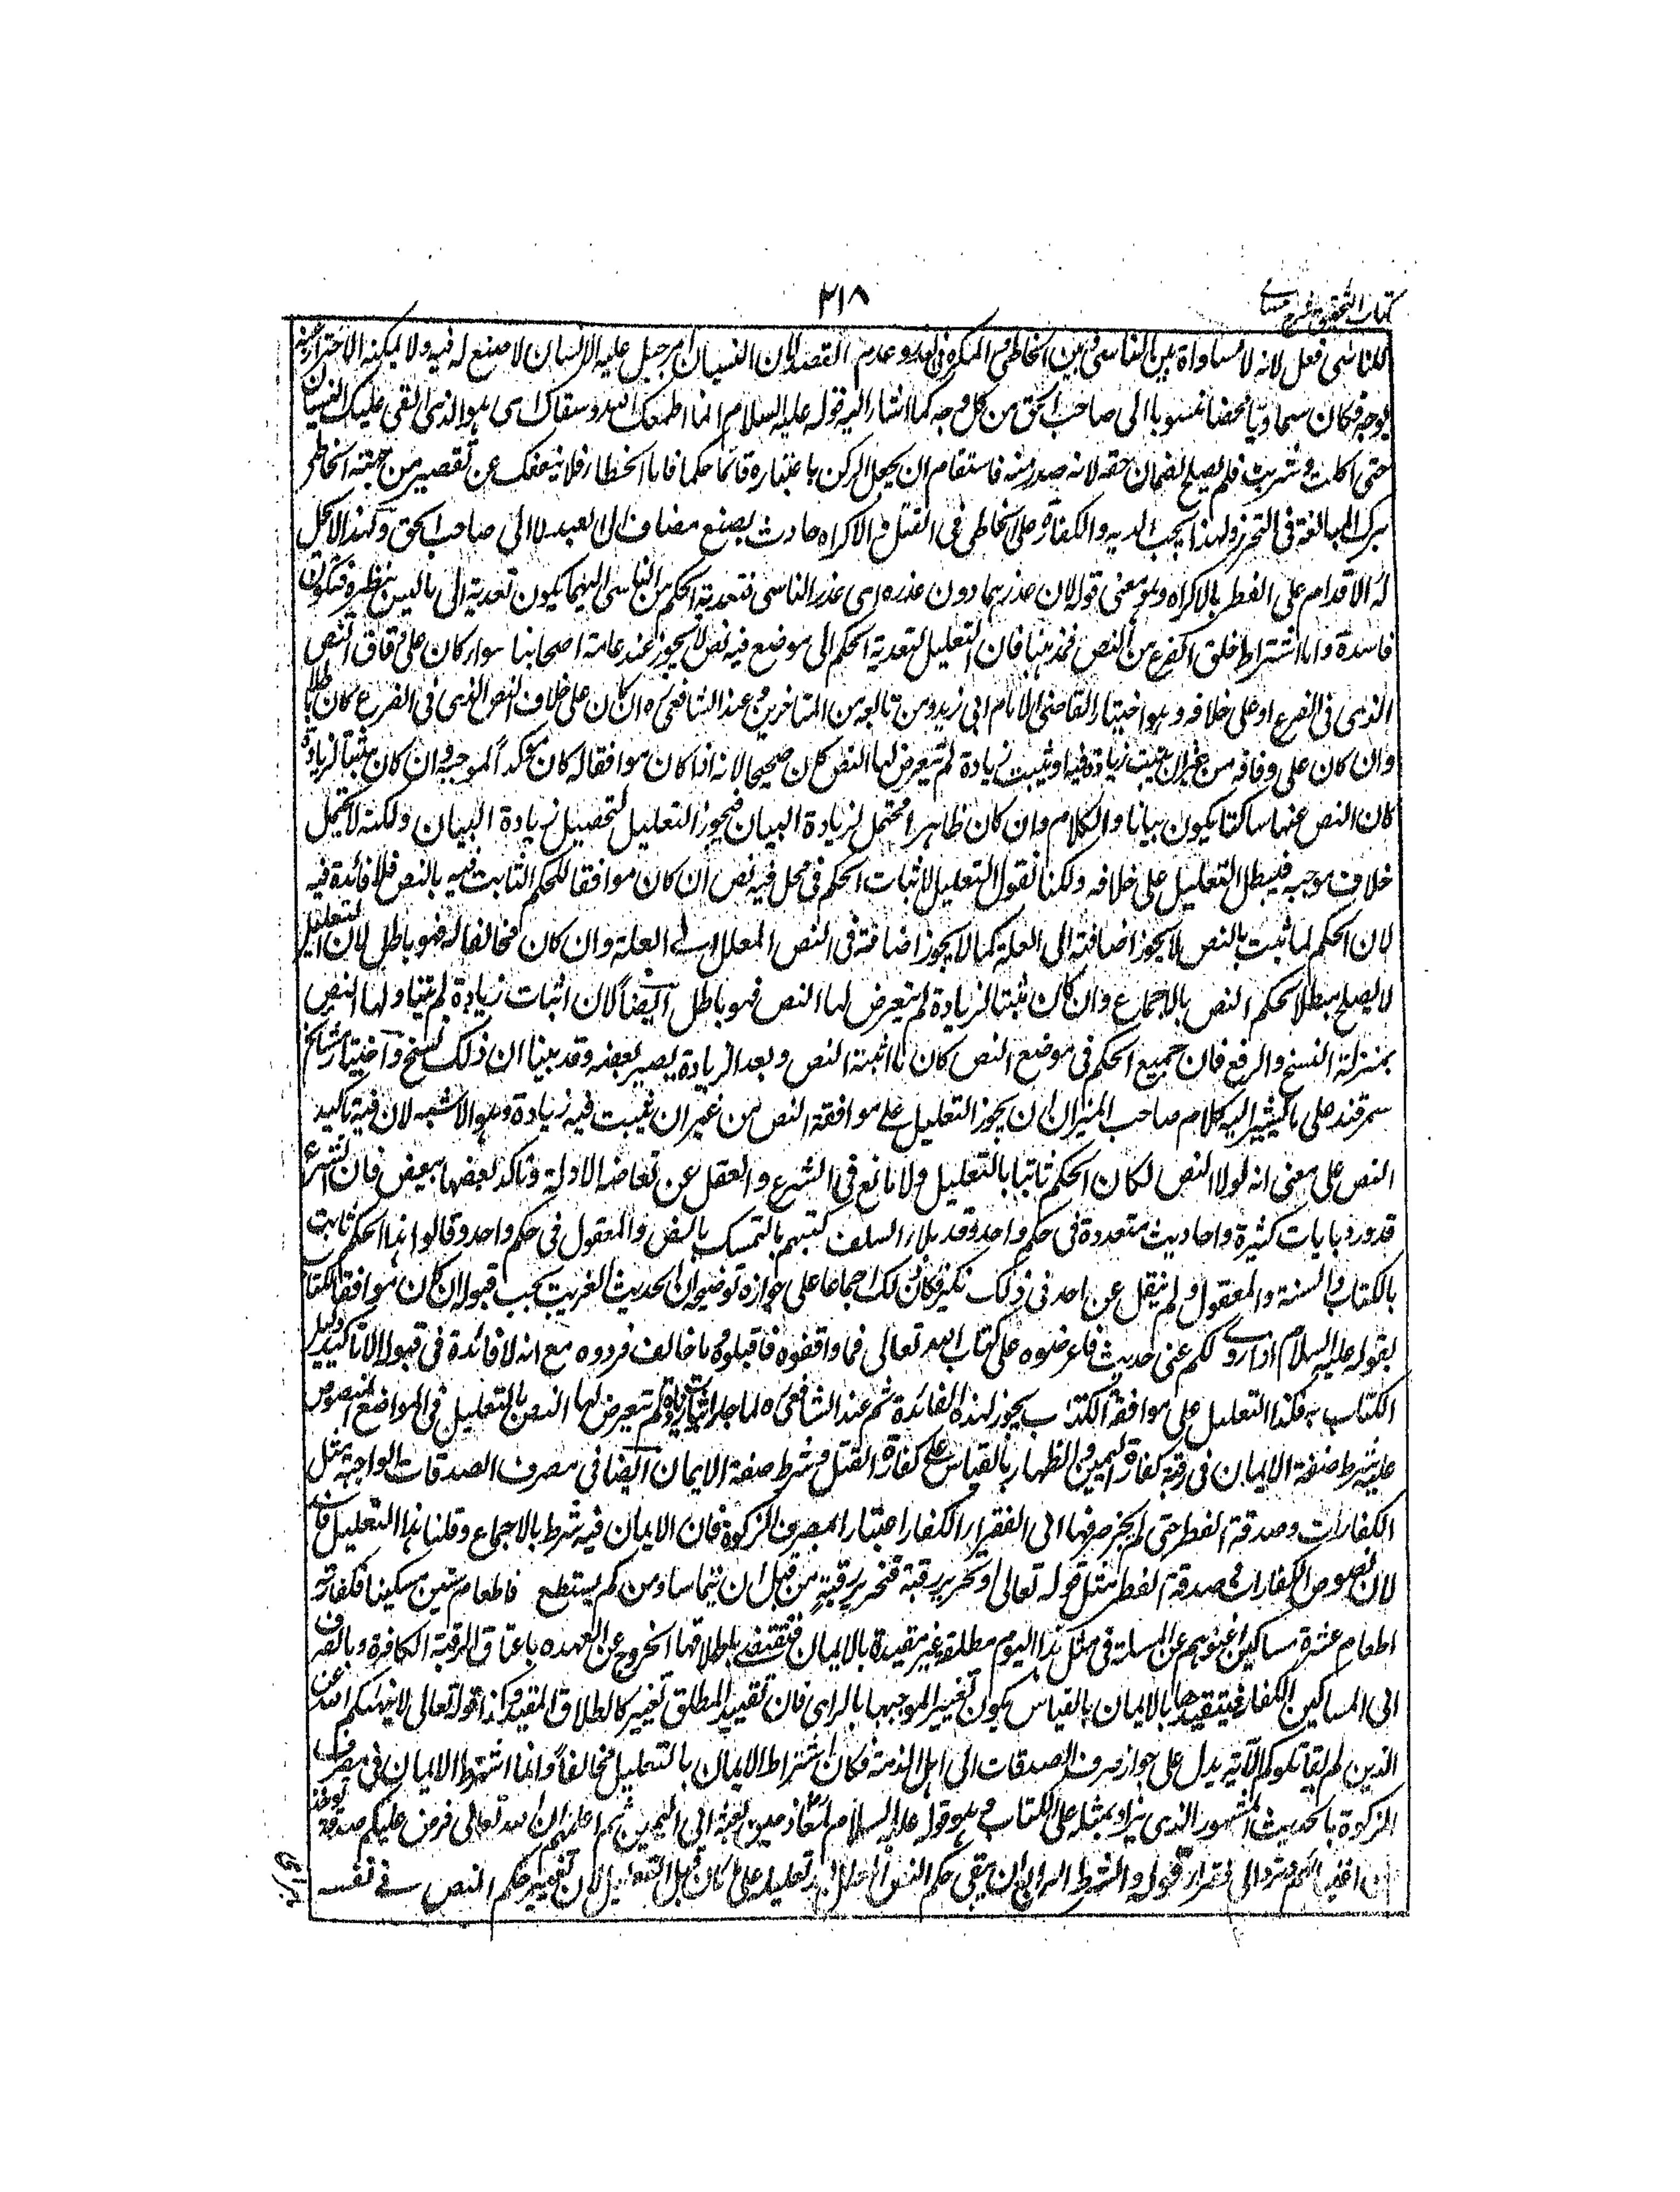 كتاب التحقيق شرح حسامى
٢١٨
للناسى فعل لانه لا مساواة بين الناسى وبين الخاطى والمكره فى العذر وعدم القصد لان النسيان امر جبل عليه الانسان لا صنع له فيه ولا يمكنه الاحتراز عنه
بوجه فكان سماويا محضا منسوبا الى صاحب الحق من كل وجه كما اشار اليه قوله عليه السلام انما اطعمك الله وسقاك اى هو الذى القى عليك النسيان
حتى اكلت وشربت فلم يصلح لضمان حقه لانه صدر منه فاستقام ان يجعل الركن باعتباره قائما حكما فاما الخطأ فلا ينفك عن تقصير من جهته الخاطى
بترك المبالغة فى التحرز ولهذا يجب الدية والكفارة على الخاطى فى القتل والاكراه حادث بصنع مضاف الى العبد لا الى صاحب الحق ولهذا لا يحل
له الاقدام على الفطر بالاكراه وهو معنى قوله لان عذرهما دون عذره اى عذر الناسى فتعدية الحكم من الناسى اليهما يكون تعدية الى ما ليس بنظيره فتكون
فاسدة واما اشتراط خلو الفرع من النص فمذهبنا فان التعليل لتعدية الحكم الى موضع فيه نص لا يجوز عند عامة اصحابنا سواء كان على وفاق النص
الذى فى الفرع او على خلافه وهو اختيار القاضى الامام ابى زيد ومن تابعه من المتاخرين وعند الشافعى ره ان كان على خلاف النص الذى فى الفرع كان باطلا
وان كان على وفاقه من غير ان يثبت زيادة فيه او يثبت زيادة لم يتعرض لها النص كان صحيحا لانه اذا كان موافقا له كان مؤكدا لموجبه وان كان مثبتا لزيادة
كان النص عنها ساكتا يكون بيانا والكلام وان كان ظاهرا محتمل لزيادة البيان فيجوز التعليل لتحصيل زيادة البيان ولكنه لا يحتمل
خلاف موجبه فيبطل التعليل على خلافه ولكنا نقول التعليل لاثبات الحكم فى محل فيه نص ان كان موافقا للحكم الثابت فيه بالنص فلا فائدة فيه
لان الحكم لما ثبت بالنص لا يجوز اضافته الى العلة كما لا يجوز اضافته فى النص المعلل الى العلة وان كان مخالفا له فهو باطل لان التعليل
لا يصلح مبطلا لحكم النص بالاجماع وان كان مثبتا لزيادة لم يتعرض لها النص فهو باطل ايضا لان اثبات زيادة لم يتناولها النص
بمنزلة النسخ والرفع فان جميع الحكم فى موضع النص كان ما اثبته النص وبعد الزيادة يصير بعضه وقد بينا ان ذلك نسخ واختيار مشائخ
سمرقند على ما يشير اليه كلام صاحب الميزان ان يجوز التعليل على موافقة النص من غير ان يثبت فيه زيادة وهو الاشبه لان فيه تاكيد
النص على معنى انه لولا النص لكان الحكم ثابتا بالتعليل ولا مانع فى الشرع والعقل عن تعاضد الادلة وتاكد بعضها ببعض فان الشرع
قد ورد بايات كثيرة واحاديث متعددة فى حكم واحد وقد ملأ السلف كتبهم بالتمسك بالنص والمعقول فى حكم واحد وقالوا هذا الحكم ثابت
بالكتاب والسنة والمعقول ولم ينقل عن احد فى ذلك نكير فكان ذلك اجماعا على جوازه توضيحه ان الحديث الغريب يجب قبوله ان كان موافقا للكتاب
بقوله عليه السلام اذا روى لكم عنى حديث فاعرضوه على كتاب الله تعالى فما وافقوه فاقبلوه وما خالف فردوه مع انه لا فائدة فى قبوله الا تاكيد دليل
الكتاب به فكذا التعليل على موافقة الكتاب يجوز لهذه الفائدة ثم عند الشافعى ره لما جاز اثبات زيادة لم يتعرض لها النص بالتعليل فى المواضع المنصوص
عليه شرط صفة الايمان فى رقبة كفارة اليمين والظهار بالقياس على كفارة القتل وشرط صفة الايمان ايضا فى مصرف الصدقات الواجبة مثل
الكفارات وصدقة الفطر حتى لم يجز صرفها الى الفقراء الكفار اعتبارا بمصرف الزكوة فان الايمان فيه شرط بالاجماع وقلنا هذا التعليل فاسد
لان نصوص الكفارات وصدقة الفطر مثل قوله تعالى او تحرير رقبة فتحرير رقبة من قبل ان يتماسا ومن لم يستطع فاطعام ستين مسكينا فكفارته
اطعام عشرة مساكين اغنوهم عن المسئلة فى مثل هذا اليوم مطلقة غير مقيدة بالايمان فتقتضى باطلاقها الخروج عن العهدة باعتاق الرقبة الكافرة وبالصرف
الى المساكين الكفار فتقييدها بالايمان بالقياس يكون تغييرا لموجبها بالراى فان تقييد المطلق تغيير كاطلاق المقيد وكذا قوله تعالى لا ينهىكم الله عن
الذين لم يقاتلوكم الآية يدل على جواز صرف الصدقات الى اهل الذمة فكان اشتراط الايمان بالتعليل مخالفا وانما اشترط الايمان فى مصرف
الزكوة بالحديث المشهور الذى يزاد بمثله على الكتاب وهو قوله عليه السلام لمعاذ حين بعثه الى اليمن ثم اعلمهم ان الله تعالى فرض عليكم صدقة توخذ
من اغنيائهم وترد الى فقرائهم قوله والشرط الرابع ان يبقى حكم النص المعلل بعد تعليله على ما كان قبل التعليل لان تغيير حكم النص فى نفسه